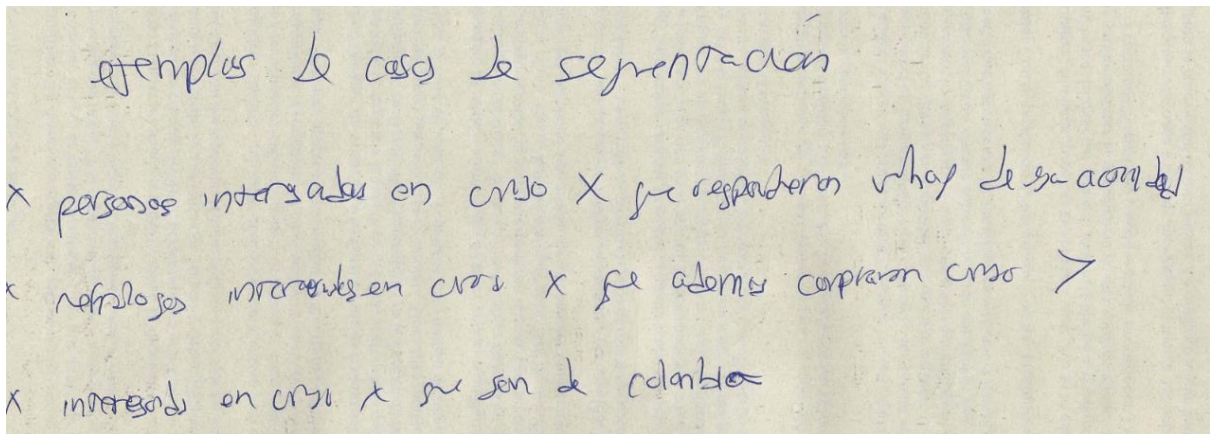 ejemplos de casos de segmentación
x personas interesadas en curso X que respondieron whap de esa actividad
x nefrologos interesados en curso X que ademas compraron curso >
x interesado en curso x que son de colombia